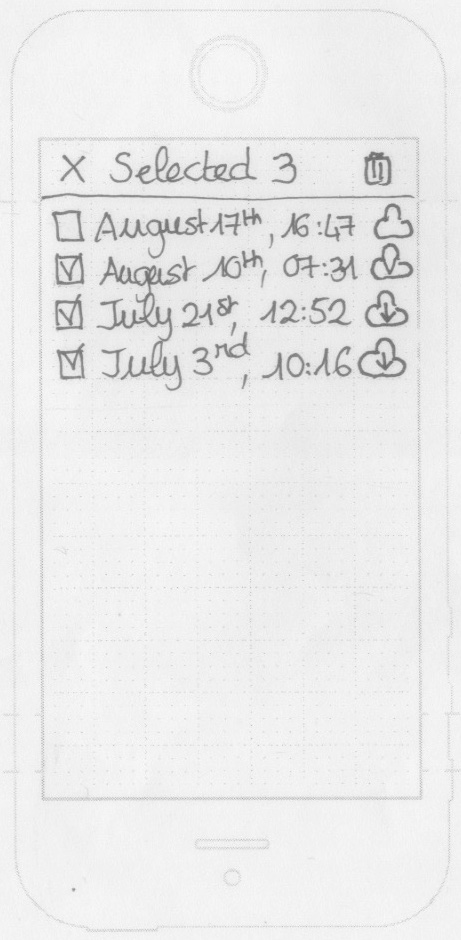 X Selected 3
August 17th, 16:47
August 10th, 07:31
July 21st, 12:52
July 3rd, 10:16